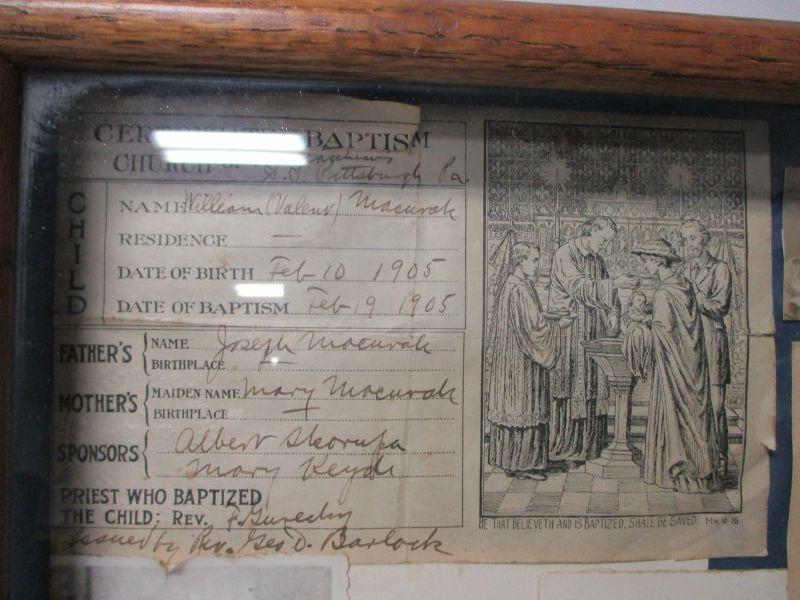 CERTIFICATE OF BAPTISM
CHURCH OF
S.S. Pittsburgh Pa.
CHILD
NAME William (Valent) Macurak
RESIDENCE —
DATE OF BIRTH Feb 10 1905
DATE OF BAPTISM Feb 19 1905
FATHER'S
NAME Joseph Macurak
BIRTHPLACE
MOTHER'S
MAIDEN NAME Mary Macurak
BIRTHPLACE
SPONSORS
Albert Skorupa
Mary
PRIEST WHO BAPTIZED
THE CHILD: REV. F.
Issued by Rev. Geo D. Barlock
HE THAT BELIEVETH AND IS BAPTIZED, SHALL BE SAVED. MK. 16-16